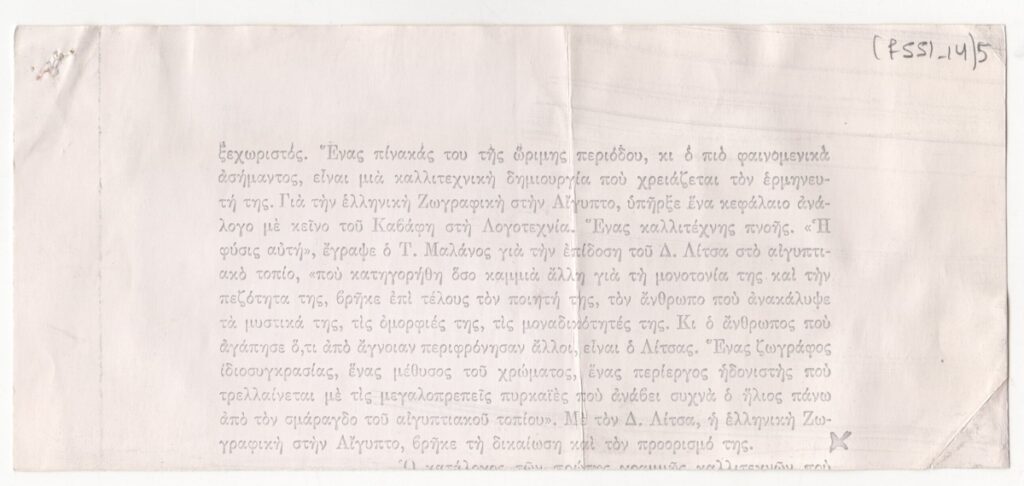 (FSSI_14)5
ξεχωριστός. Ἕνας πίνακάς του τῆς ὥριμης περιόδου, κι ὁ πιὸ φαινομενικὰ
ἀσήμαντος, εἶναι μιὰ καλλιτεχνικὴ δημιουργία ποὺ χρειάζεται τὸν ἑρμηνευ-
τή της. Γιὰ τὴν ἑλληνικὴ Ζωγραφικὴ στὴν Αἴγυπτο, ὑπῆρξε ἕνα κεφάλαιο ἀνά-
λογο μὲ κεῖνο τοῦ Καβάφη στὴ Λογοτεχνία. Ἕνας καλλιτέχνης πνοῆς. «Ἡ
φύσις αὐτή», ἔγραψε ὁ Τ. Μαλάνος γιὰ τὴν ἐπίδοση τοῦ Δ. Λίτσα στὸ αἰγυπτι-
ακὸ τοπίο, «ποὺ κατηγορήθη ὅσο καμμιὰ ἄλλη γιὰ τὴ μονοτονία της καὶ τὴν
πεζότητα της, βρῆκε ἐπὶ τέλους τὸν ποιητή της, τὸν ἄνθρωπο ποὺ ἀνακάλυψε
τὰ μυστικά της, τὶς ὀμορφιές της, τὶς μοναδικότητές της. Κι ὁ ἄνθρωπος ποὺ
ἀγάπησε ὅ,τι ἀπὸ ἄγνοιαν περιφρόνησαν ἄλλοι, εἶναι ὁ Λίτσας. Ἕνας ζωγράφος
ἰδιοσυγκρασίας, ἕνας μέθυσος τοῦ χρώματος, ἕνας περίεργος ἡδονιστὴς ποὺ
τρελλαίνεται μὲ τὶς μεγαλοπρεπεῖς πυρκαϊὲς ποὺ ἀνάβει συχνὰ ὁ ἥλιος πάνω
ἀπὸ τὸν σμάραγδο τοῦ αἰγυπτιακοῦ τοπίου». Μὲ τὸν Δ. Λίτσα, ἡ ἑλληνικὴ Ζω-
γραφικὴ στὴν Αἴγυπτο, βρῆκε τὴ δικαίωση καὶ τὸν προορισμό της.
Ὁ κατάλογος τῶν πρώτης γραμμῆς καλλιτεχνῶν ποὺ